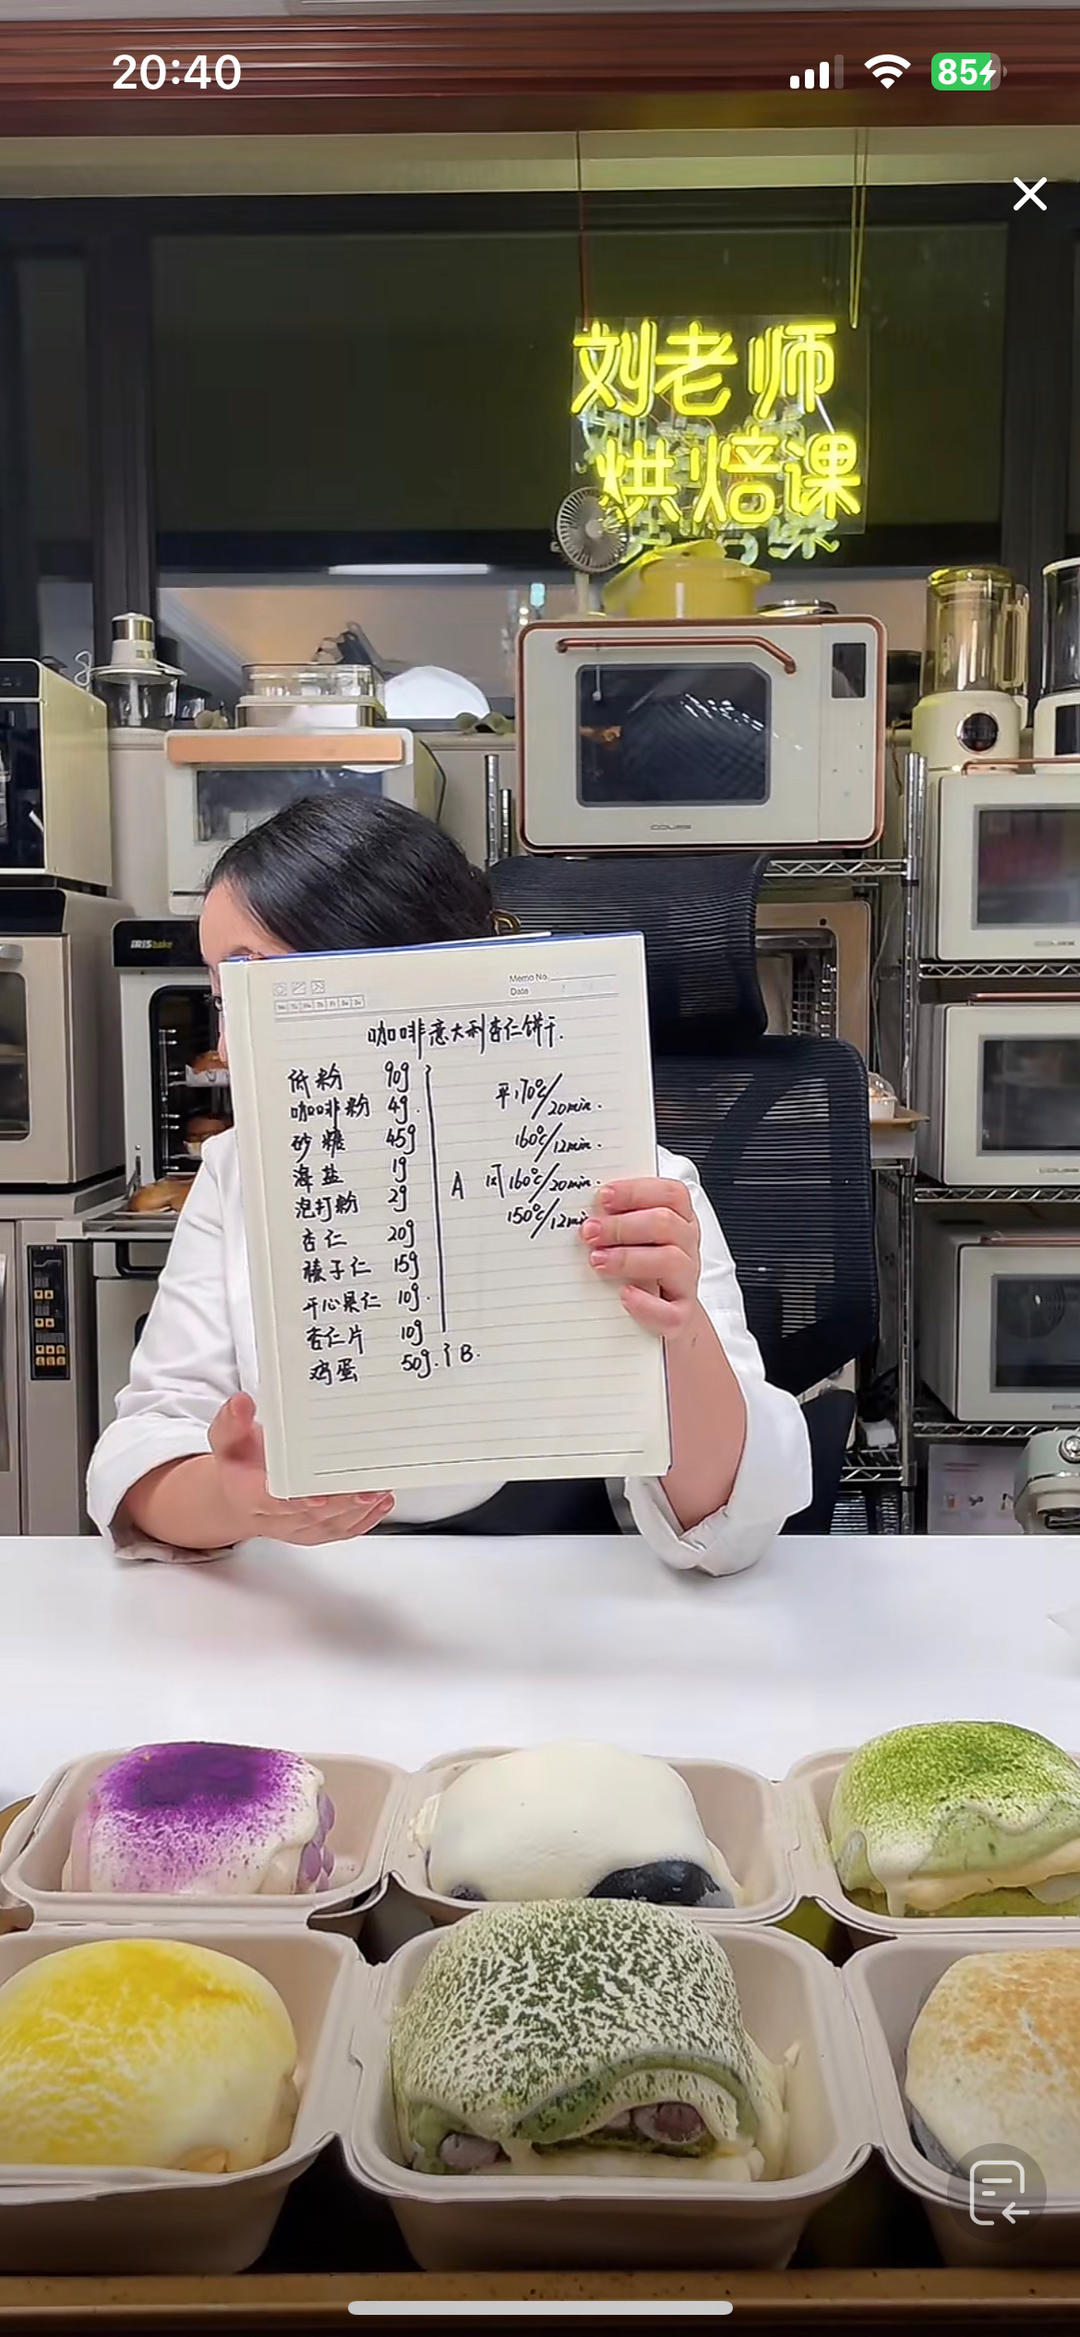 20:40
85
刘老师
烘焙课
IRIS bake
Memo No.
Date
咖啡意大利杏仁饼干.
低粉 90g
咖啡粉 4g.
砂糖 45g
海盐 1g
泡打粉 2g
杏仁 20g
榛子仁 15g
开心果仁 10g.
杏仁片 10g
A
鸡蛋 50g. } B.
平170℃/20min.
160℃/12min.
风160℃/20min.
150℃/12min